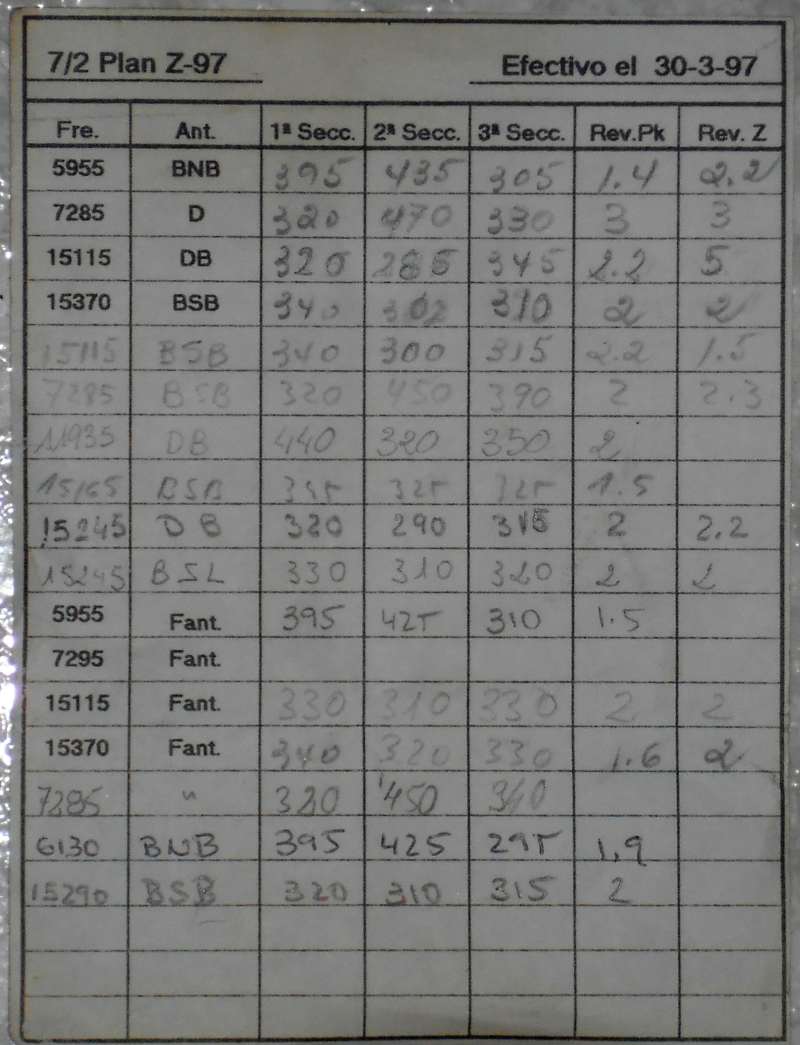 7/2 Plan Z-97 Efectivo el 30-3-97
Fre. Ant. 1ª Secc. 2ª Secc. 3ª Secc. Rev.Pk Rev. Z
5955 BNB 395 435 305 1.4 2.2
7285 D 320 470 330 3 3
15115 DB 320 285 345 2.2 5
15370 BSB 340 302 310 2 2
15115 BSB 340 300 315 2.2 1.5
7285 BSB 320 450 390 2 2.3
11935 DB 440 320 350 2
15165 BSB 325 1.5
15245 DB 320 290 315 2 2.2
15245 BSL 330 310 320 2 2
5955 Fant. 395 425 310 1.5
7295 Fant.
15115 Fant. 330 310 330 2 2
15370 Fant. 340 320 330 1.6 2
7285 " 320 450 340
6130 BNB 395 425 295 1.9
15290 BSB 320 310 315 2